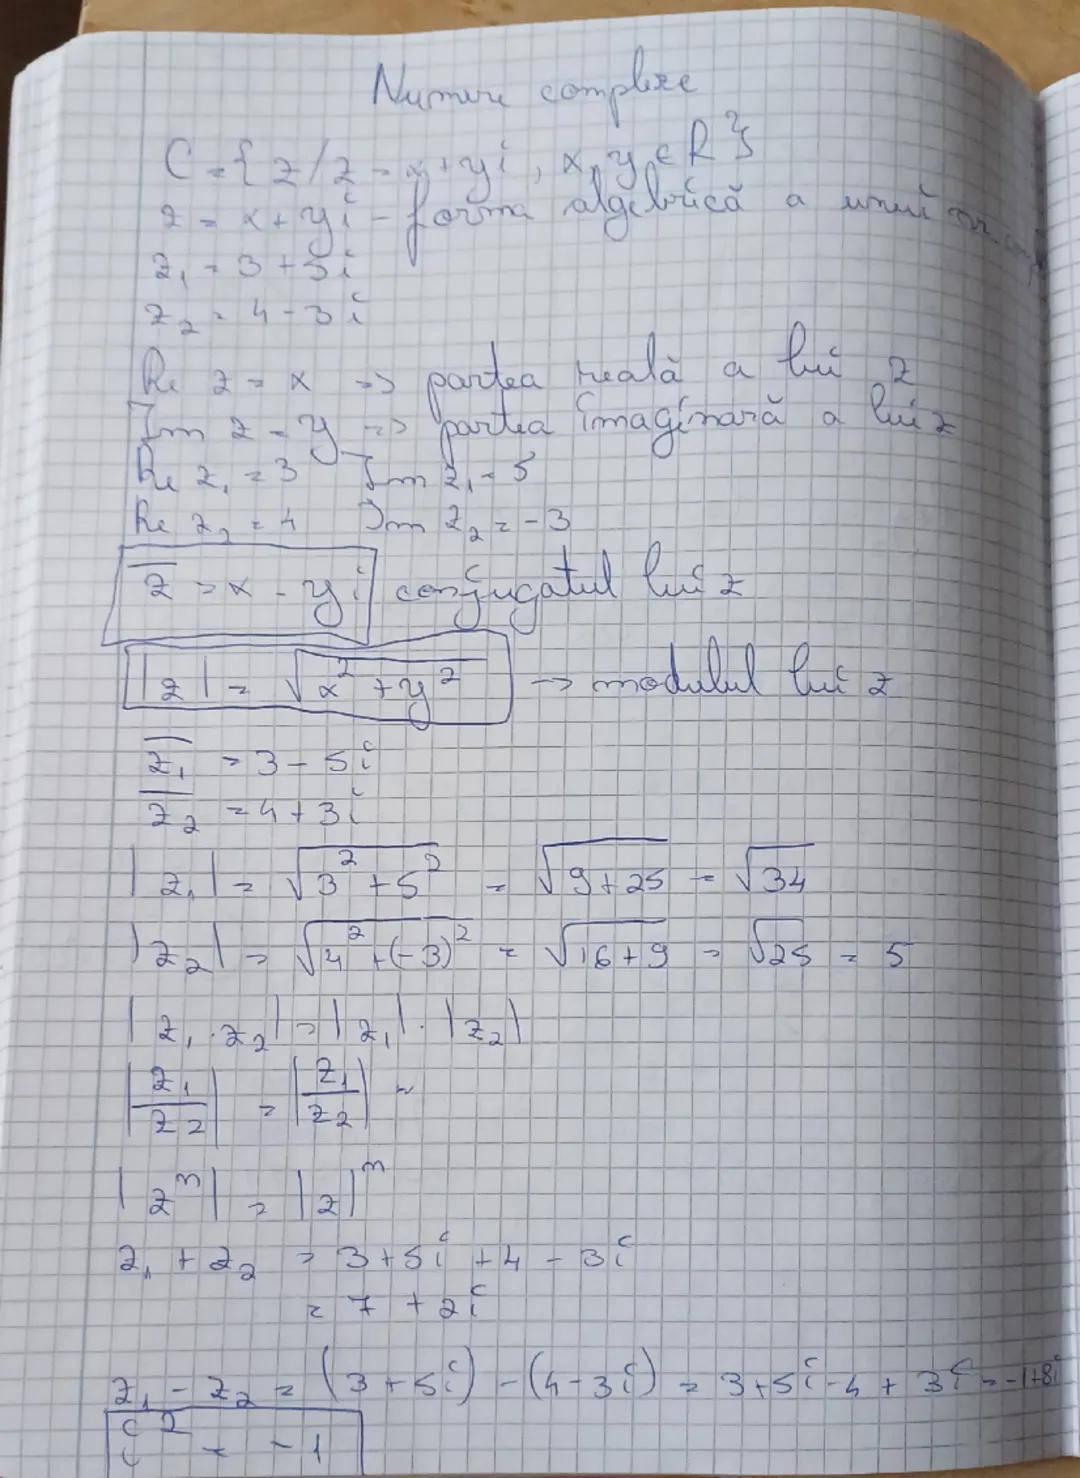 Numere complexe
C = { z / z = x + yi , x, y ∈ R }
z = x + yi - forma algebrică a unui nr. comp
z₁ = 3 + 5i
z₂ = 4 - 3i
Re z = x => partea reală a lui z
Im z = y => partea imaginară a lui z
Re z₁ = 3 Im z₁ = 5
Re z₂ = 4 Im z₂ = -3
z̅ = x - yi conjugatul lui z
|z| = √(x² + y²) → modulul lui z
z̅₁ = 3 - 5i
z̅₂ = 4 + 3i
|z₁| = √(3² + 5²) = √(9 + 25) = √34
|z₂| = √(4² + (-3)²) = √(16 + 9) = √25 = 5
|z₁ · z₂| = |z₁| · |z₂|
|z₁/z₂| = |z₁/z₂| =
|zⁿ| = |z|ⁿ
z₁ + z₂ = 3 + 5i + 4 - 3i
= 7 + 2i
z₁ - z₂ = (3 + 5i) - (4 - 3i) = 3 + 5i - 4 + 3i = -1 + 8i
i² = -1